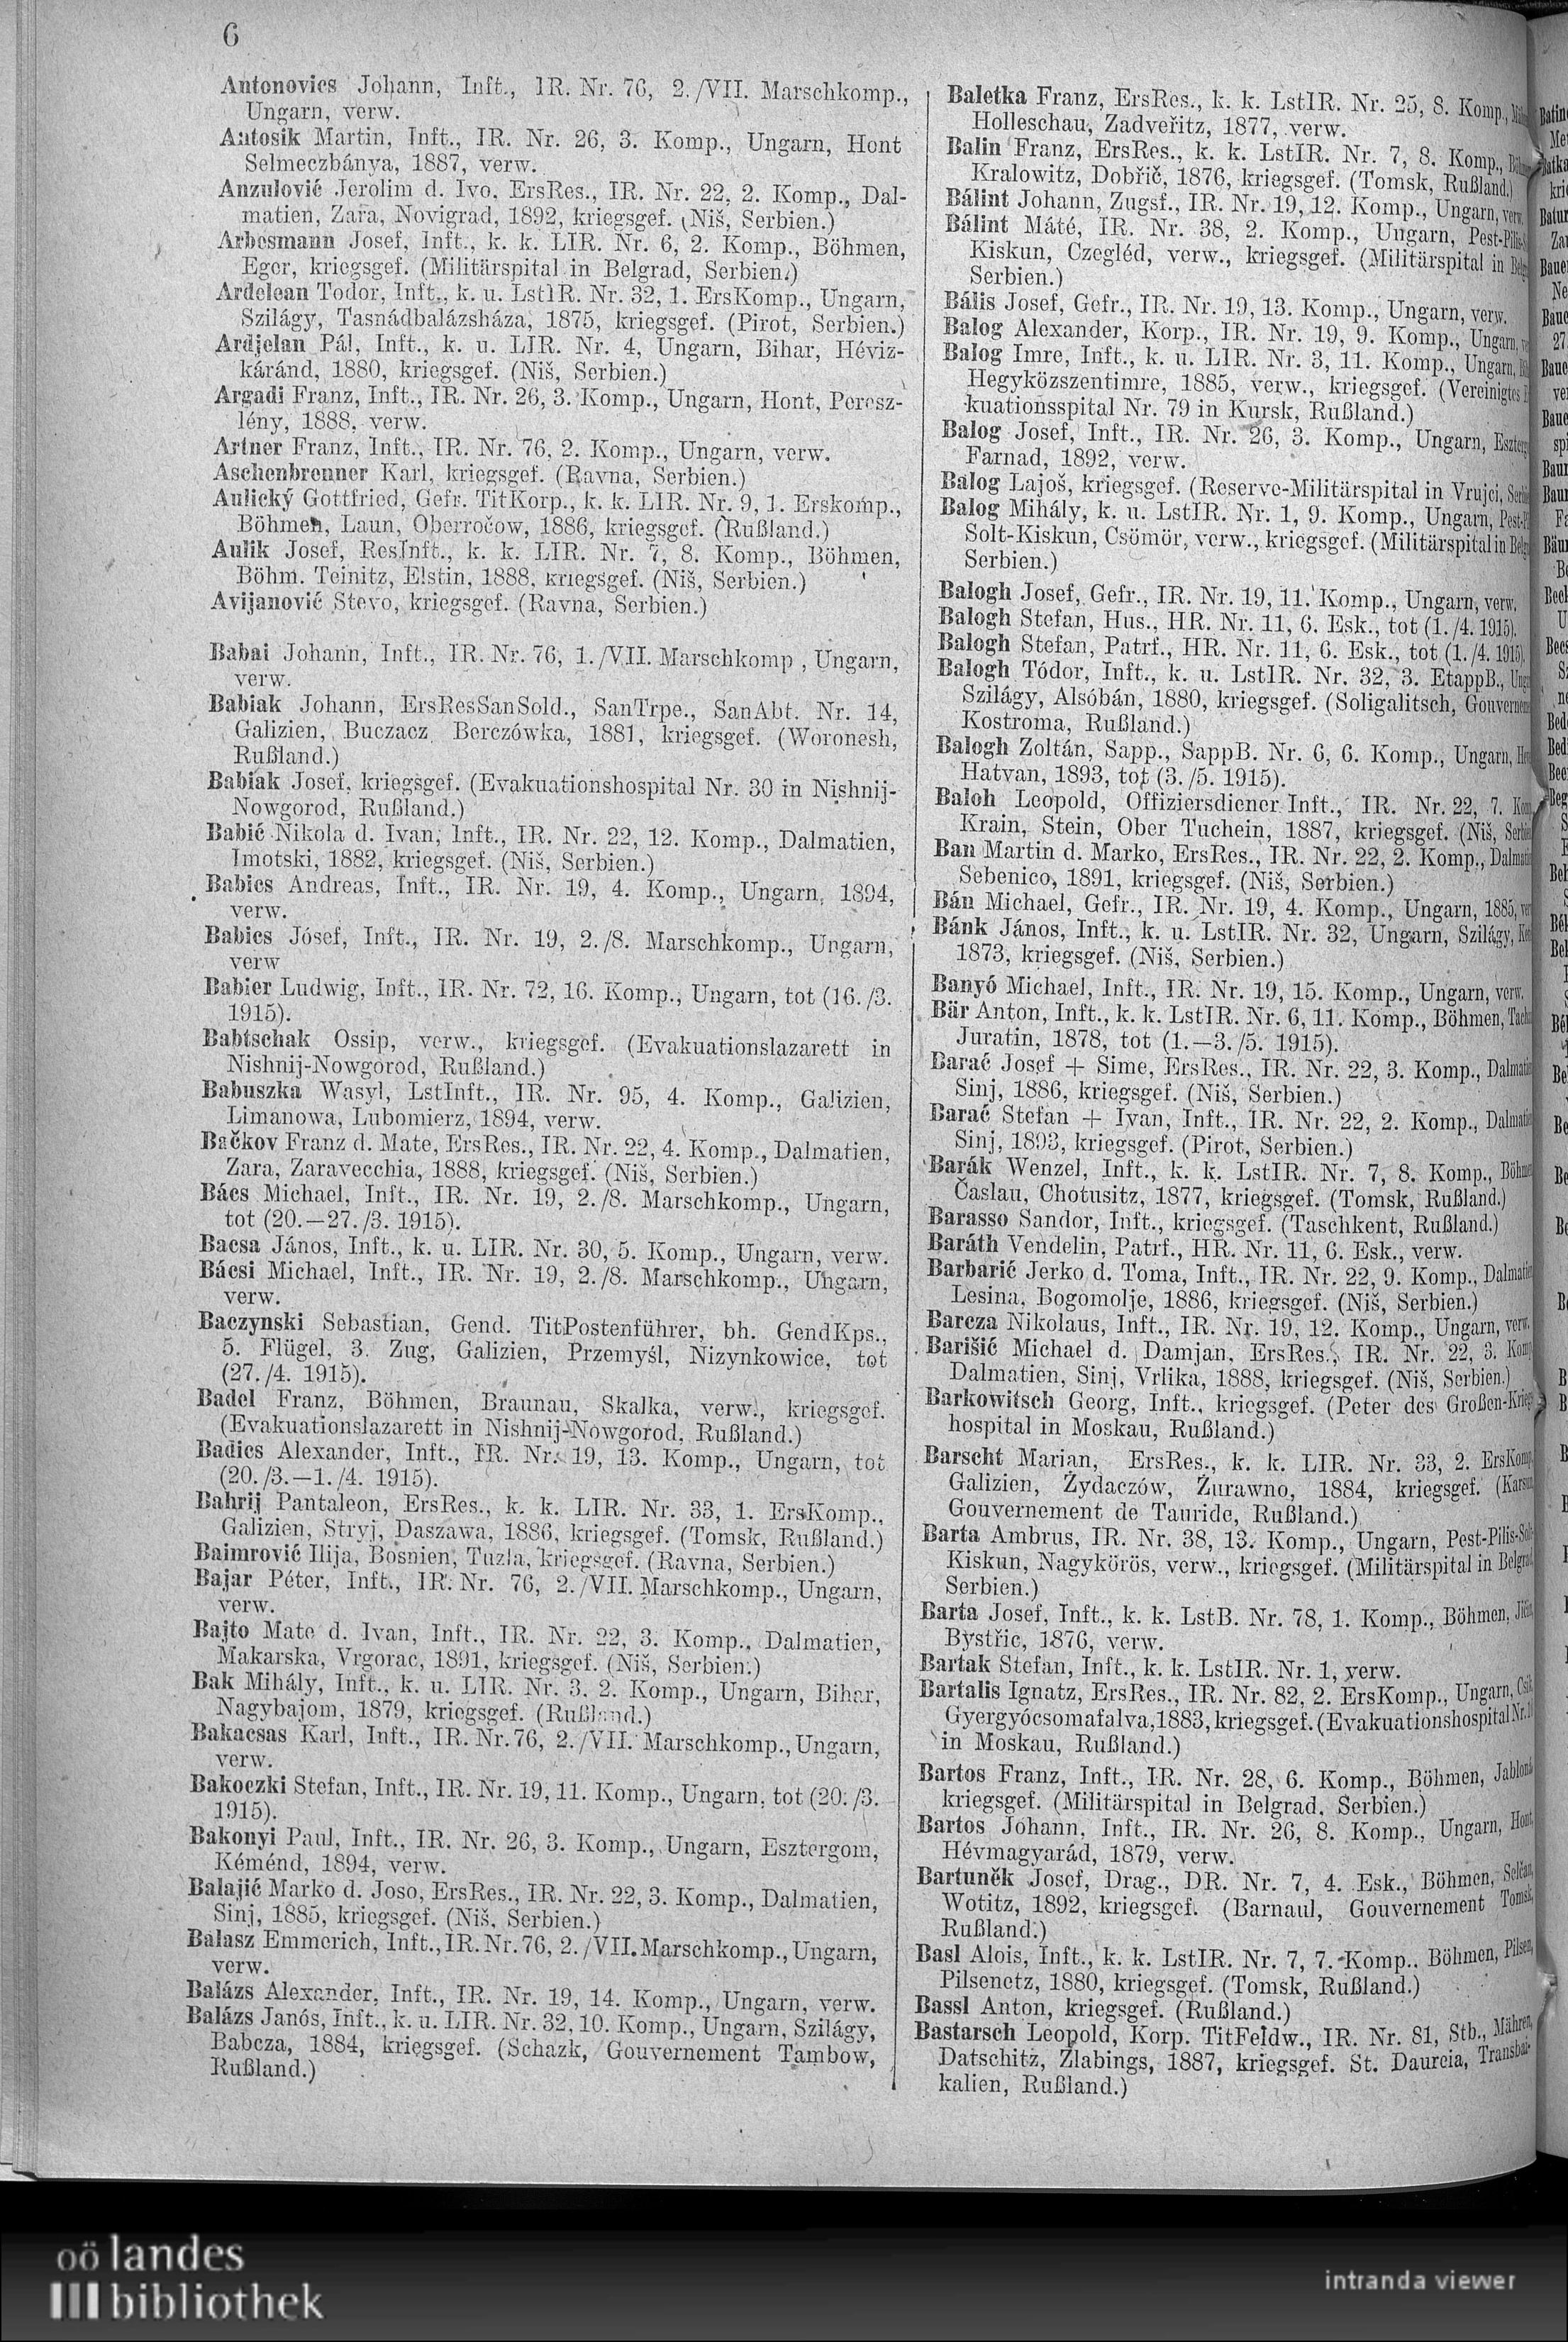 6
Antonovics Johann, Inft., IR. Nr. 76, 2./VII. Marschkomp.,
Ungarn, verw.
Antosik Martin, Inft., IR. Nr. 26, 3. Komp., Ungarn, Hont
Selmeczbánya, 1887, verw.
Anzulović Jerolim d. Ivo, ErsRes., IR. Nr. 22, 2. Komp., Dal-
matien, Zara, Novigrad, 1892, kriegsgef. (Niš, Serbien.)
Arbesmann Josef, Inft., k. k. LIR. Nr. 6, 2. Komp., Böhmen,
Eger, kriegsgef. (Militärspital in Belgrad, Serbien.)
Ardelean Todor, Inft., k. u. LstIR. Nr. 32, 1. ErsKomp., Ungarn,
Szilágy, Tasnádbalázsháza, 1875, kriegsgef. (Pirot, Serbien.)
Ardjelan Pál, Inft., k. u. LIR. Nr. 4, Ungarn, Bihar, Héviz-
káránd, 1880, kriegsgef. (Niš, Serbien.)
Argadi Franz, Inft., IR. Nr. 26, 3. Komp., Ungarn, Hont, Peresz-
lény, 1888, verw.
Artner Franz, Inft., IR. Nr. 76, 2. Komp., Ungarn, verw.
Aschenbrenner Karl, kriegsgef. (Ravna, Serbien.)
Aulický Gottfried, Gefr. TitKorp., k. k. LIR. Nr. 9, 1. Erskomp.,
Böhmen, Laun, Oberročow, 1886, kriegsgef. (Rußland.)
Aulik Josef, ResInft., k. k. LIR. Nr. 7, 8. Komp., Böhmen,
Böhm. Teinitz, Elstin, 1888, kriegsgef. (Niš, Serbien.)
Avijanović Stevo, kriegsgef. (Ravna, Serbien.)
Babai Johann, Inft., IR. Nr. 76, 1./VII. Marschkomp., Ungarn,
verw.
Babiak Johann, ErsResSanSold., SanTrpe., SanAbt. Nr. 14,
Galizien, Buczacz, Berczówka, 1881, kriegsgef. (Woronesh,
Rußland.)
Babiak Josef, kriegsgef. (Evakuationshospital Nr. 30 in Nishnij-
Nowgorod, Rußland.)
Babić Nikola d. Ivan, Inft., IR. Nr. 22, 12. Komp., Dalmatien,
Imotski, 1882, kriegsgef. (Niš, Serbien.)
Babics Andreas, Inft., IR. Nr. 19, 4. Komp., Ungarn, 1894,
verw.
Babics Jósef, Inft., IR. Nr. 19, 2./8. Marschkomp., Ungarn,
verw
Babier Ludwig, Inft., IR. Nr. 72, 16. Komp., Ungarn, tot (16./3.
1915).
Babtschak Ossip, verw., kriegsgef. (Evakuationslazarett in
Nishnij-Nowgorod, Rußland.)
Babuszka Wasyl, LstInft., IR. Nr. 95, 4. Komp., Galizien,
Limanowa, Lubomierz, 1894, verw.
Bačkov Franz d. Mate, ErsRes., IR. Nr. 22, 4. Komp., Dalmatien,
Zara, Zaravecchia, 1888, kriegsgef. (Niš, Serbien.)
Bács Michael, Inft., IR. Nr. 19, 2./8. Marschkomp., Ungarn,
tot (20.—27./3. 1915).
Bacsa János, Inft., k. u. LIR. Nr. 30, 5. Komp., Ungarn, verw.
Bácsi Michael, Inft., IR. Nr. 19, 2./8. Marschkomp., Ungarn,
verw.
Baczynski Sebastian, Gend. TitPostenführer, bh. GendKps.,
5. Flügel, 3. Zug, Galizien, Przemyśl, Nizynkowice, tot
(27./4. 1915).
Badel Franz, Böhmen, Braunau, Skalka, verw., kriegsgef.
(Evakuationslazarett in Nishnij-Nowgorod, Rußland.)
Badics Alexander, Inft., IR. Nr. 19, 13. Komp., Ungarn, tot
(20./3.—1./4. 1915).
Bahrij Pantaleon, ErsRes., k. k. LIR. Nr. 33, 1. ErsKomp.,
Galizien, Stryj, Daszawa, 1886, kriegsgef. (Tomsk, Rußland.)
Baimrović Ilija, Bosnien, Tuzla, kriegsgef. (Ravna, Serbien.)
Bajar Péter, Inft., IR. Nr. 76, 2./VII. Marschkomp., Ungarn,
verw.
Bajto Mate d. Ivan, Inft., IR. Nr. 22, 3. Komp., Dalmatien,
Makarska, Vrgorac, 1891, kriegsgef. (Niš, Serbien.)
Bak Mihály, Inft., k. u. LIR. Nr. 3, 2. Komp., Ungarn, Bihar,
Nagybajom, 1879, kriegsgef. (Rußland.)
Bakacsas Karl, Inft., IR. Nr. 76, 2./VII. Marschkomp., Ungarn,
verw.
Bakoczki Stefan, Inft., IR. Nr. 19, 11. Komp., Ungarn, tot (20./3.
1915).
Bakonyi Paul, Inft., IR. Nr. 26, 3. Komp., Ungarn, Esztergom,
Kéménd, 1894, verw.
Balajić Marko d. Joso, ErsRes., IR. Nr. 22, 3. Komp., Dalmatien,
Sinj, 1885, kriegsgef. (Niš, Serbien.)
Balasz Emmerich, Inft., IR. Nr. 76, 2./VII. Marschkomp., Ungarn,
verw.
Balázs Alexander, Inft., IR. Nr. 19, 14. Komp., Ungarn, verw.
Balázs Janós, Inft., k. u. LIR. Nr. 32, 10. Komp., Ungarn, Szilágy,
Babcza, 1884, kriegsgef. (Schazk, Gouvernement Tambow,
Rußland.)
Baletka Franz, ErsRes., k. k. LstIR. Nr. 25, 8. Komp.,
Holleschau, Zadveřitz, 1877, verw.
Balin Franz, ErsRes., k. k. LstIR. Nr. 7, 8. Komp.,
Kralowitz, Dobřič, 1876, kriegsgef. (Tomsk, Rußland.)
Bálint Johann, Zugsf., IR. Nr. 19, 12. Komp., Ungarn, verw.
Bálint Máté, IR. Nr. 38, 2. Komp., Ungarn, Pest-Pilis-
Kiskun, Czegléd, verw., kriegsgef. (Militärspital in
Serbien.)
Bális Josef, Gefr., IR. Nr. 19, 13. Komp., Ungarn, verw.
Balog Alexander, Korp., IR. Nr. 19, 9. Komp., Ungarn,
Balog Imre, Inft., k. u. LIR. Nr. 3, 11. Komp., Ungarn,
Hegyközszentimre, 1885, verw., kriegsgef. (Vereinigtes
kuationsspital Nr. 79 in Kursk, Rußland.)
Balog Josef, Inft., IR. Nr. 26, 3. Komp., Ungarn,
Farnad, 1892, verw.
Balog Lajoš, kriegsgef. (Reserve-Militärspital in Vrujci,
Balog Mihály, k. u. LstIR. Nr. 1, 9. Komp., Ungarn,
Solt-Kiskun, Csömör, verw., kriegsgef. (Militärspital in
Serbien.)
Balogh Josef, Gefr., IR. Nr. 19, 11. Komp., Ungarn, verw.
Balogh Stefan, Hus., HR. Nr. 11, 6. Esk., tot (1./4. 1915).
Balogh Stefan, Patrf., HR. Nr. 11, 6. Esk., tot (1./4. 1915).
Balogh Tódor, Inft., k. u. LstIR. Nr. 32, 3. EtappB.,
Szilágy, Alsóbán, 1880, kriegsgef. (Soligalitsch,
Kostroma, Rußland.)
Balogh Zoltán, Sapp., SappB. Nr. 6, 6. Komp., Ungarn,
Hatvan, 1893, tot (3./5. 1915).
Baloh Leopold, Offiziersdiener Inft., IR. Nr. 22, 7.
Krain, Stein, Ober Tuchein, 1887, kriegsgef. (Niš,
Ban Martin d. Marko, ErsRes., IR. Nr. 22, 2. Komp.,
Sebenico, 1891, kriegsgef. (Niš, Serbien.)
Bán Michael, Gefr., IR. Nr. 19, 4. Komp., Ungarn, 1885,
Bánk János, Inft., k. u. LstIR. Nr. 32, Ungarn, Szilágy,
1873, kriegsgef. (Niš, Serbien.)
Banyó Michael, Inft., IR. Nr. 19, 15. Komp., Ungarn, verw.
Bär Anton, Inft., k. k. LstIR. Nr. 6, 11. Komp., Böhmen,
Juratin, 1878, tot (1.—3./5. 1915).
Barać Josef + Sime, ErsRes., IR. Nr. 22, 3. Komp.,
Sinj, 1886, kriegsgef. (Niš, Serbien.)
Barać Stefan + Ivan, Inft., IR. Nr. 22, 2. Komp.,
Sinj, 1893, kriegsgef. (Pirot, Serbien.)
Barák Wenzel, Inft., k. k. LstIR. Nr. 7, 8. Komp.,
Časlau, Chotusitz, 1877, kriegsgef. (Tomsk, Rußland.)
Barasso Sandor, Inft., kriegsgef. (Taschkent, Rußland.)
Baráth Vendelin, Patrf., HR. Nr. 11, 6. Esk., verw.
Barbarić Jerko d. Toma, Inft., IR. Nr. 22, 9. Komp.,
Lesina, Bogomolje, 1886, kriegsgef. (Niš, Serbien.)
Barcza Nikolaus, Inft., IR. Nr. 19, 12. Komp., Ungarn, verw.
Barišić Michael d. Damjan, ErsRes., IR. Nr. 22, 3.
Dalmatien, Sinj, Vrlika, 1888, kriegsgef. (Niš, Serbien.)
Barkowitsch Georg, Inft., kriegsgef. (Peter des Großen-
hospital in Moskau, Rußland.)
Barscht Marian, ErsRes., k. k. LIR. Nr. 33, 2.
Galizien, Żydaczów, Żurawno, 1884, kriegsgef.
Gouvernement de Tauride, Rußland.)
Barta Ambrus, IR. Nr. 38, 13. Komp., Ungarn,
Kiskun, Nagykörös, verw., kriegsgef. (Militärspital in
Serbien.)
Barta Josef, Inft., k. k. LstB. Nr. 78, 1. Komp., Böhmen,
Bystřic, 1876, verw.
Bartak Stefan, Inft., k. k. LstIR. Nr. 1, verw.
Bartalis Ignatz, ErsRes., IR. Nr. 82, 2. ErsKomp., Ungarn,
Gyergyócsomafalva, 1883, kriegsgef. (Evakuationshospital
in Moskau, Rußland.)
Bartos Franz, Inft., IR. Nr. 28, 6. Komp., Böhmen,
kriegsgef. (Militärspital in Belgrad, Serbien.)
Bartos Johann, Inft., IR. Nr. 26, 8. Komp., Ungarn, Hont,
Hévmagyarád, 1879, verw.
Bartuněk Josef, Drag., DR. Nr. 7, 4. Esk., Böhmen, Selčan,
Wotitz, 1892, kriegsgef. (Barnaul, Gouvernement Tomsk,
Rußland.)
Basl Alois, Inft., k. k. LstIR. Nr. 7, 7. Komp., Böhmen, Pilsen,
Pilsenetz, 1880, kriegsgef. (Tomsk, Rußland.)
Bassl Anton, kriegsgef. (Rußland.)
Bastarsch Leopold, Korp. TitFeldw., IR. Nr. 81, Stb., Mähren,
Datschitz, Zlabings, 1887, kriegsgef. St. Daureia, Transbai-
kalien, Rußland.)
oö landes
bibliothek
intranda viewer